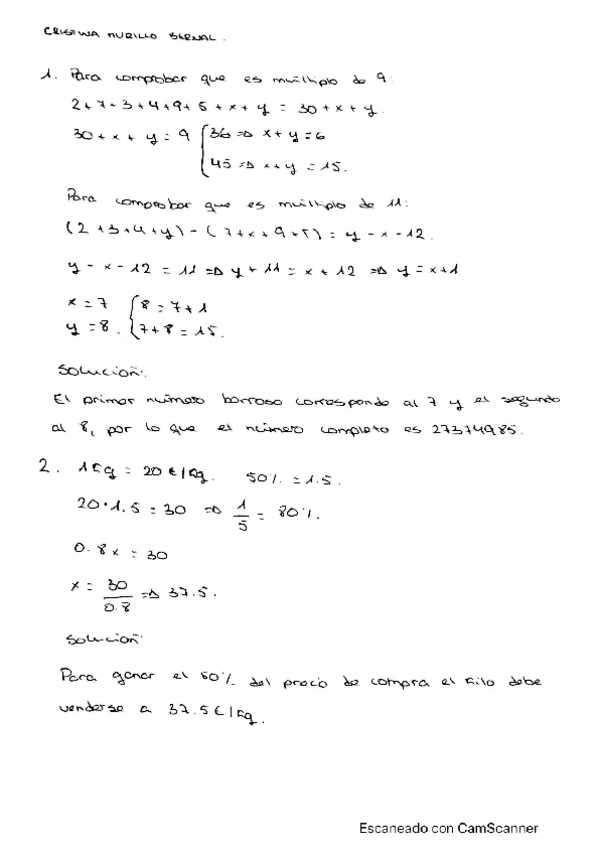 CRISTINA MURILLO BERNAL.
1. Para comprobar que es múltiplo de 9:
2+7+3+4+9+5+x+y = 30+x+y.
30+x+y = 9 { 36 => x+y=6
45 => x+y=15.
Para comprobar que es múltiplo de 11:
(2+3+4+y)-(7+x+9+5) = y-x-12.
y-x-12 = 11 => y+11 = x+12 => y=x+1
x=7 { 8=7+1
y=8. 7+8=15.
Solución:
El primer número borroso corresponde al 7 y el segundo
al 8, por lo que el número completo es 27374985.
2. 1Kg = 20€/Kg. 50% = 1.5.
20·1.5 = 30 => 1/5 = 80%.
0.8x = 30
x = 30/0.8 => 37.5.
Solución:
Para ganar el 50% del precio de compra el kilo debe
venderse a 37.5€/Kg.
Escaneado con CamScanner